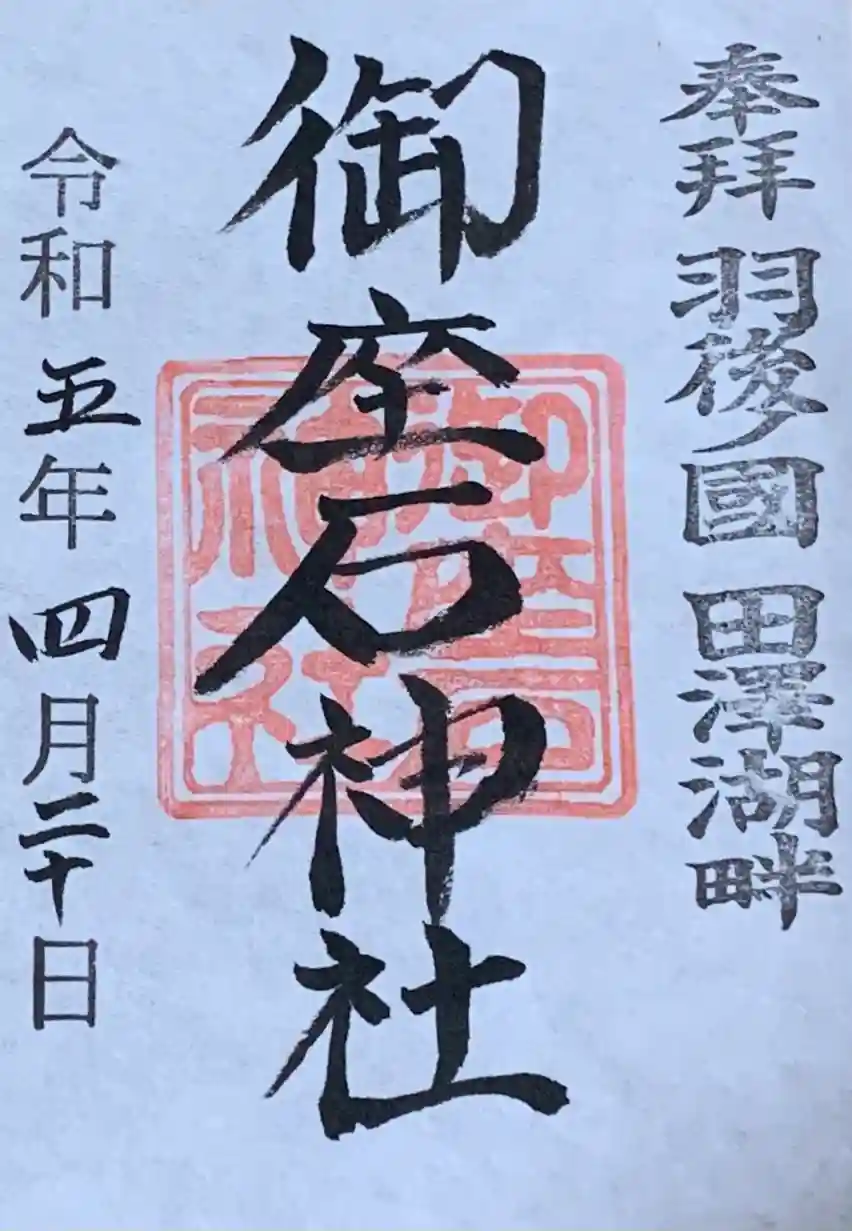 奉拝 羽後ノ國 田澤湖畔
御座石神社
御座石
神社
令和五年四月二十日